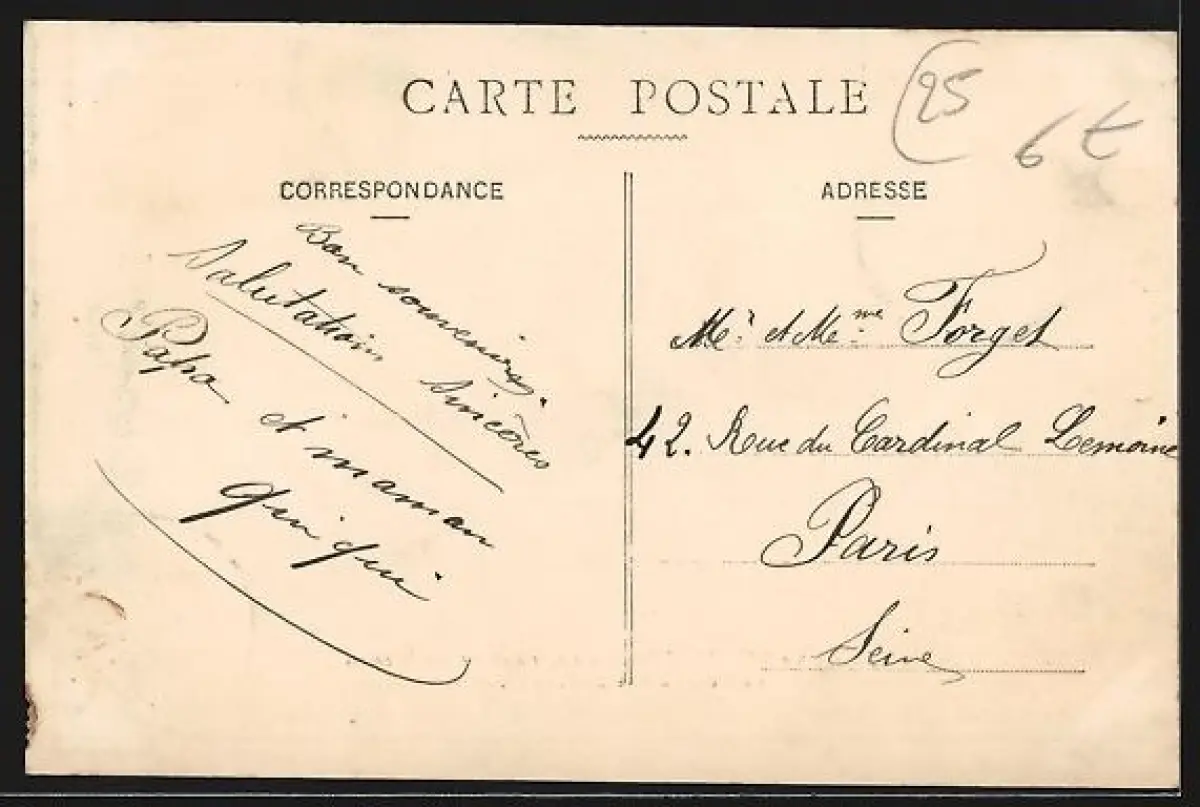 CARTE POSTALE
25
6 €
CORRESPONDANCE
Bon souvenirs.
Salutations Sincères
Papa et maman
qui qui
ADRESSE
Mr. et Mme. Forget
42. Rue du Cardinal Lemoine
Paris
Seine